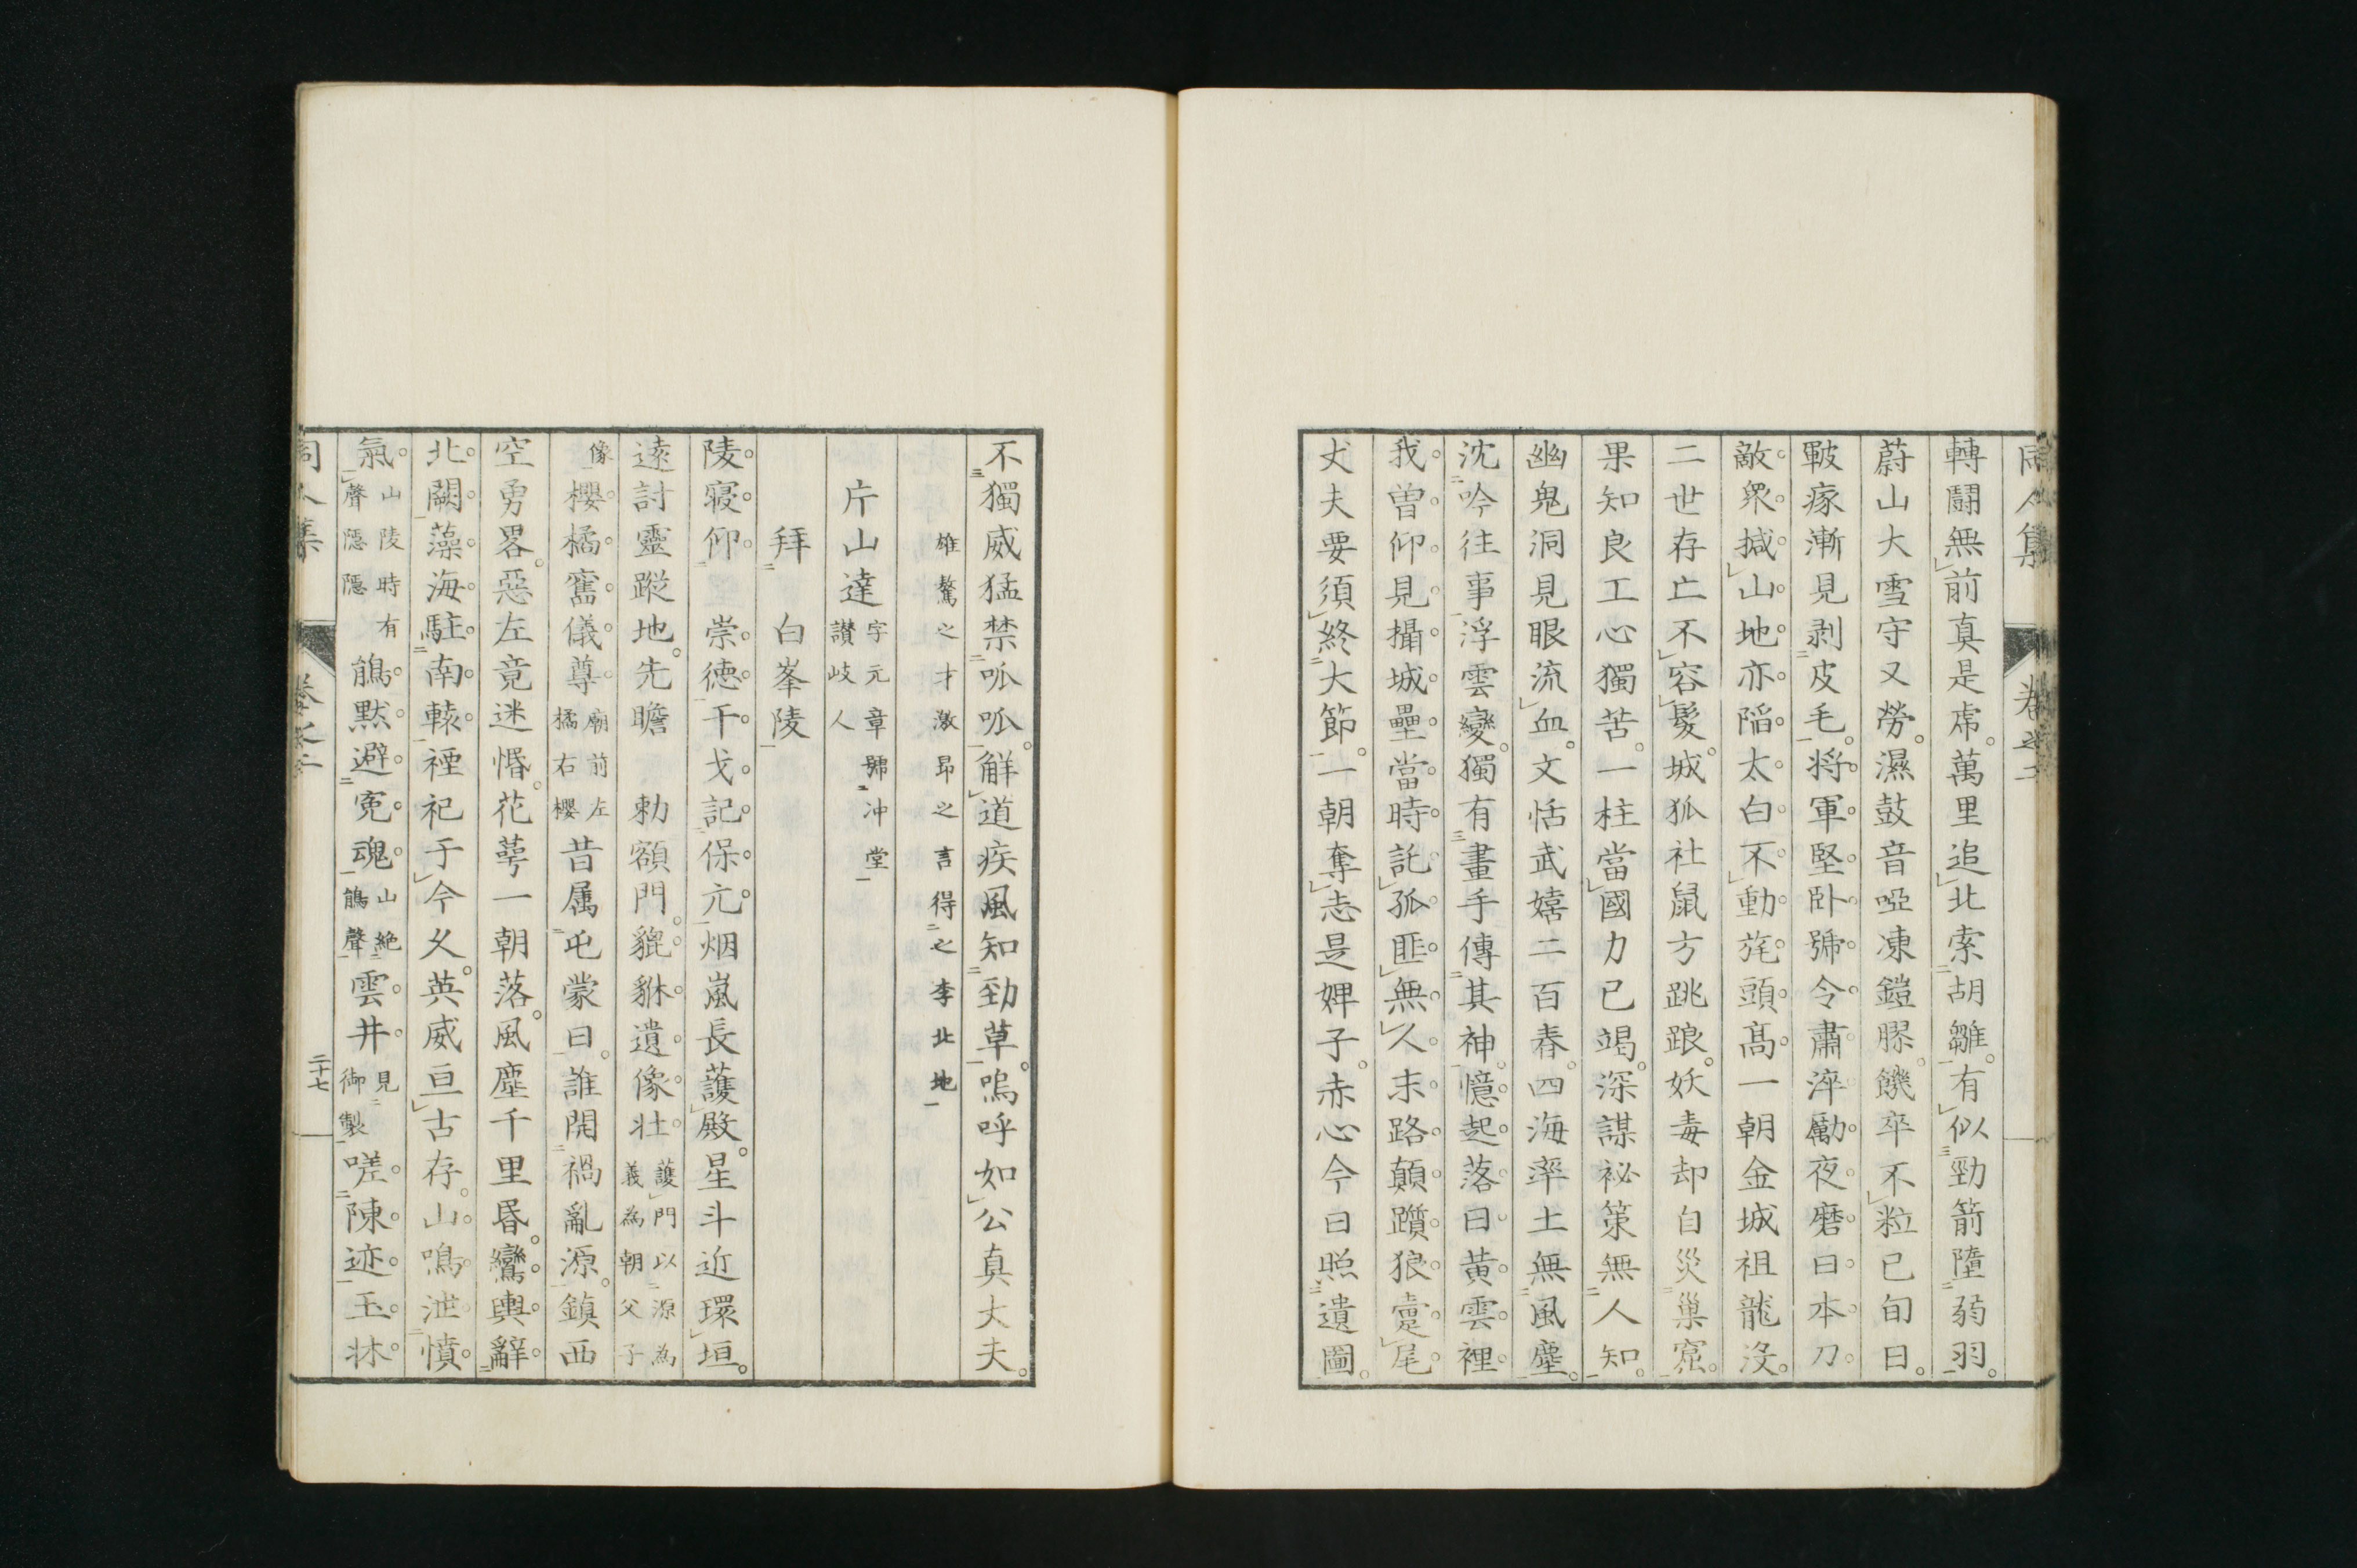 同人集 卷之二
轉鬪無前真是虎。萬里追北索胡雛。有似勁箭墮弱羽。
蔚山大雪守又勞。濕鼓音啞凍鎧膠。饑卒不粒已旬日。
皸瘃漸見剥皮毛。将軍堅卧號令肅淬勵夜磨日本刀
敵衆撼山地亦陷太白不動旄頭髙一朝金城祖龍没。
二世存亡不容髮。城狐社鼠方跳踉。妖毒却自災巢窟。
果知良工心獨苦。一柱當國力已竭。深謀祕策無人知。
幽鬼洞見眼流血。文恬武嬉二百春。四海率土無風塵。
沈吟往事浮雲變。獨有畫手傳其神。憶起落日黃雲裡
我曽仰見攝城壘當時託孤匪無人末路顛躓狼疐尾
丈夫要須終大節。一朝奪志是婢子。赤心今日照遺圖。
不獨威猛禁呱呱。觧道疾風知勁草。嗚呼如公真大夫。
雄驁之才激昂之言得之李北地
片山達 字元章號冲堂讃岐人
拜白峯陵
陵寝仰 崇德干戈記保元烟嵐長護殿。星斗近環垣。
遠討靈蹤地。先瞻 勅額門。貔貅遺像壮 護門以源為義為朝父子
像 櫻橘舊儀尊 廟前左橘右櫻 昔属屯蒙日。誰開禍亂源。鎮西
空勇畧。惡左竟迷惛。花萼一朝落。風塵千里昏。鸞輿辭
北闕藻海駐南轅禋祀于今久。英威亘古存。山鳴泄憤
氣 山陵時有聲隱隱 鵑黙避寃魂 山絶鵑聲 雲井 見御製 嗟陳迹玉牀
同人集 卷之二 二十七